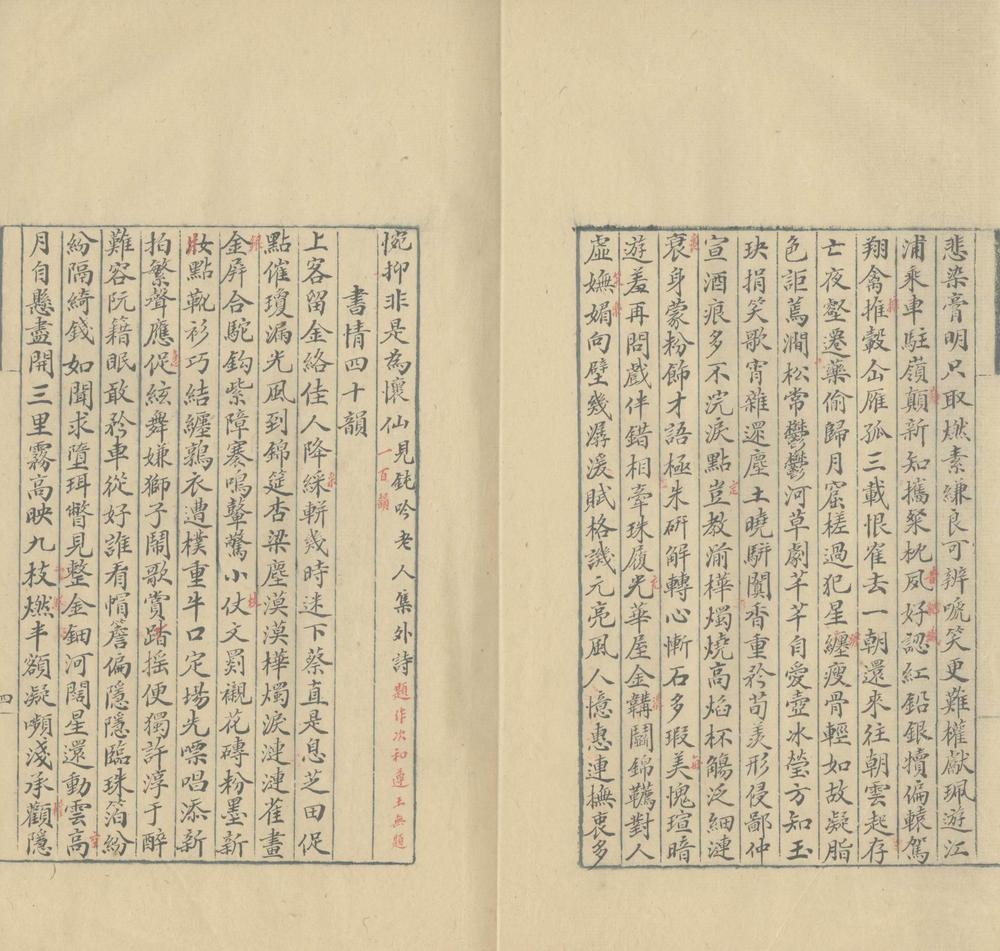 悲染膏明只取燃素縑良可辨唬笑更難權獻珮遊江
浦乘車駐嶺顛新知攜粲枕夙好認紅鉛銀犢偏轅駕
翔禽推轂仚雁孤三載恨隺去一朝還來往朝雲起存
亡夜壑遷藥偷歸月窟槎過犯星纏瘦骨輕如故凝脂
色詎蔫澗松常鬱鬱河草劇芊芊自愛壺冰瑩方知玉
玦捐笑歌宵雜遝塵土曉駢闐香重矜荀羙形侵鄙仲
宣酒痕多不浣淚點豈教湔樺燭燒高焰杯觴泛細漣
衰身蒙粉飾才語極朱硏解轉心慚石多瑕美愧瑄暗
遊羞再問戲伴錯相牽珠履光華屋金韝鬭錦韉對人
虛嫵媚向壁幾潺湲賦格譏元亮風人憶惠連撫衷多
惋抑非是為懷仙見鈍吟老人集外詩題作次和遵王無題
一百韻
書情四十韻
上客留金絡佳人降綵輧幾時迷下蔡直是息芝田促
點催瓊漏光風到錦筵杏梁塵漠漠樺燭淚漣漣雀畫
金屏合駝鈎紫障褰鳴鼙驚小仗文罽襯花磚粉墨新
妝點靴衫巧結纏鶉衣遭樸重牛口定場光嘌唱添新
拍繁聲應促絃舞嫌獅子鬧歌賞踏搖便獨許淳于醉
難容阮籍眠敢矜車從好誰看帽簷偏隱隱臨珠箔紛
紛隔綺錢如聞求墮珥瞥見整金鈿河闊星還動雲高
月自懸盡開三里霧高映九枝燃半額凝嚬淺承顴隱
四